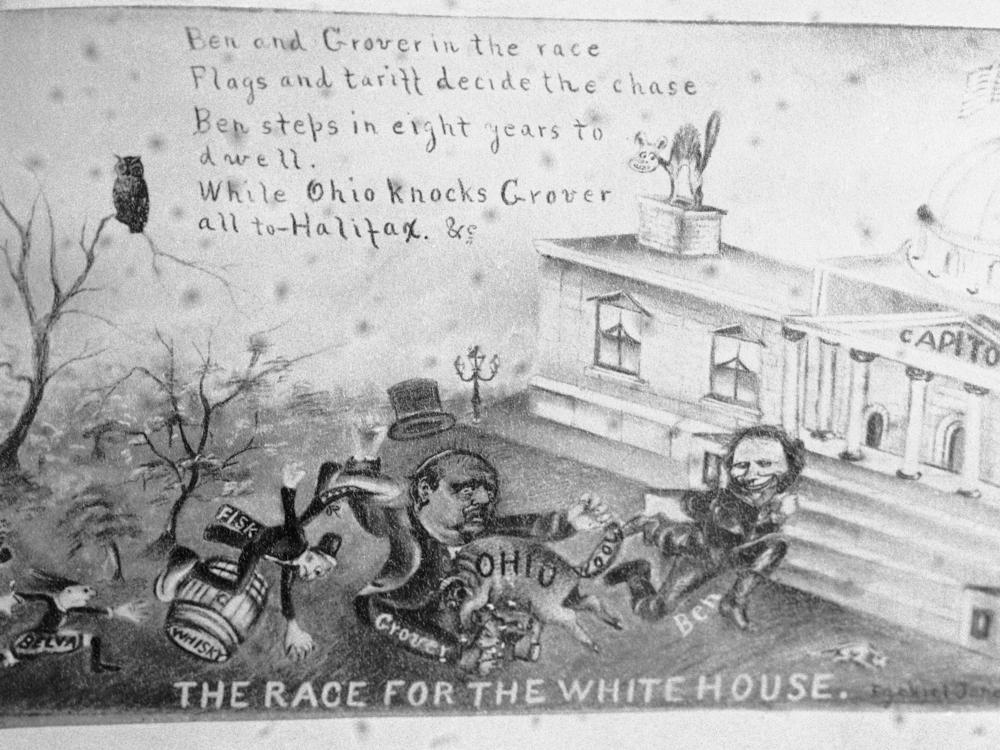 Ben and Grover in the race
Flags and tariff decide the chase
Ben steps in eight years to
dwell.
While Ohio knocks Grover
all to-Halifax. &c
CAPITO
FISK
OHIO
WHISKY
Grover
Ben
BELVA
THE RACE FOR THE WHITE HOUSE.
Ezekiel